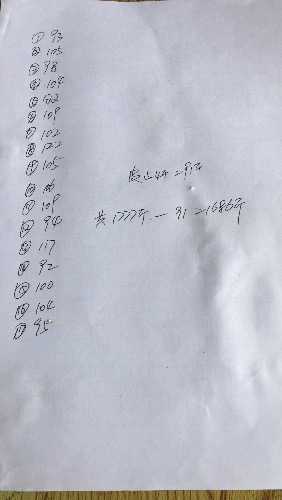 ① 93
② 105
③ 98
④ 104
⑤ 112
⑥ 109
⑦ 102
⑧ 122
⑨ 105
⑩ 116
⑪ 109
⑫ 94
⑬ 117
⑭ 92
⑮ 100
⑯ 104
⑰ 95
共1777斤 - 91 = 1686斤